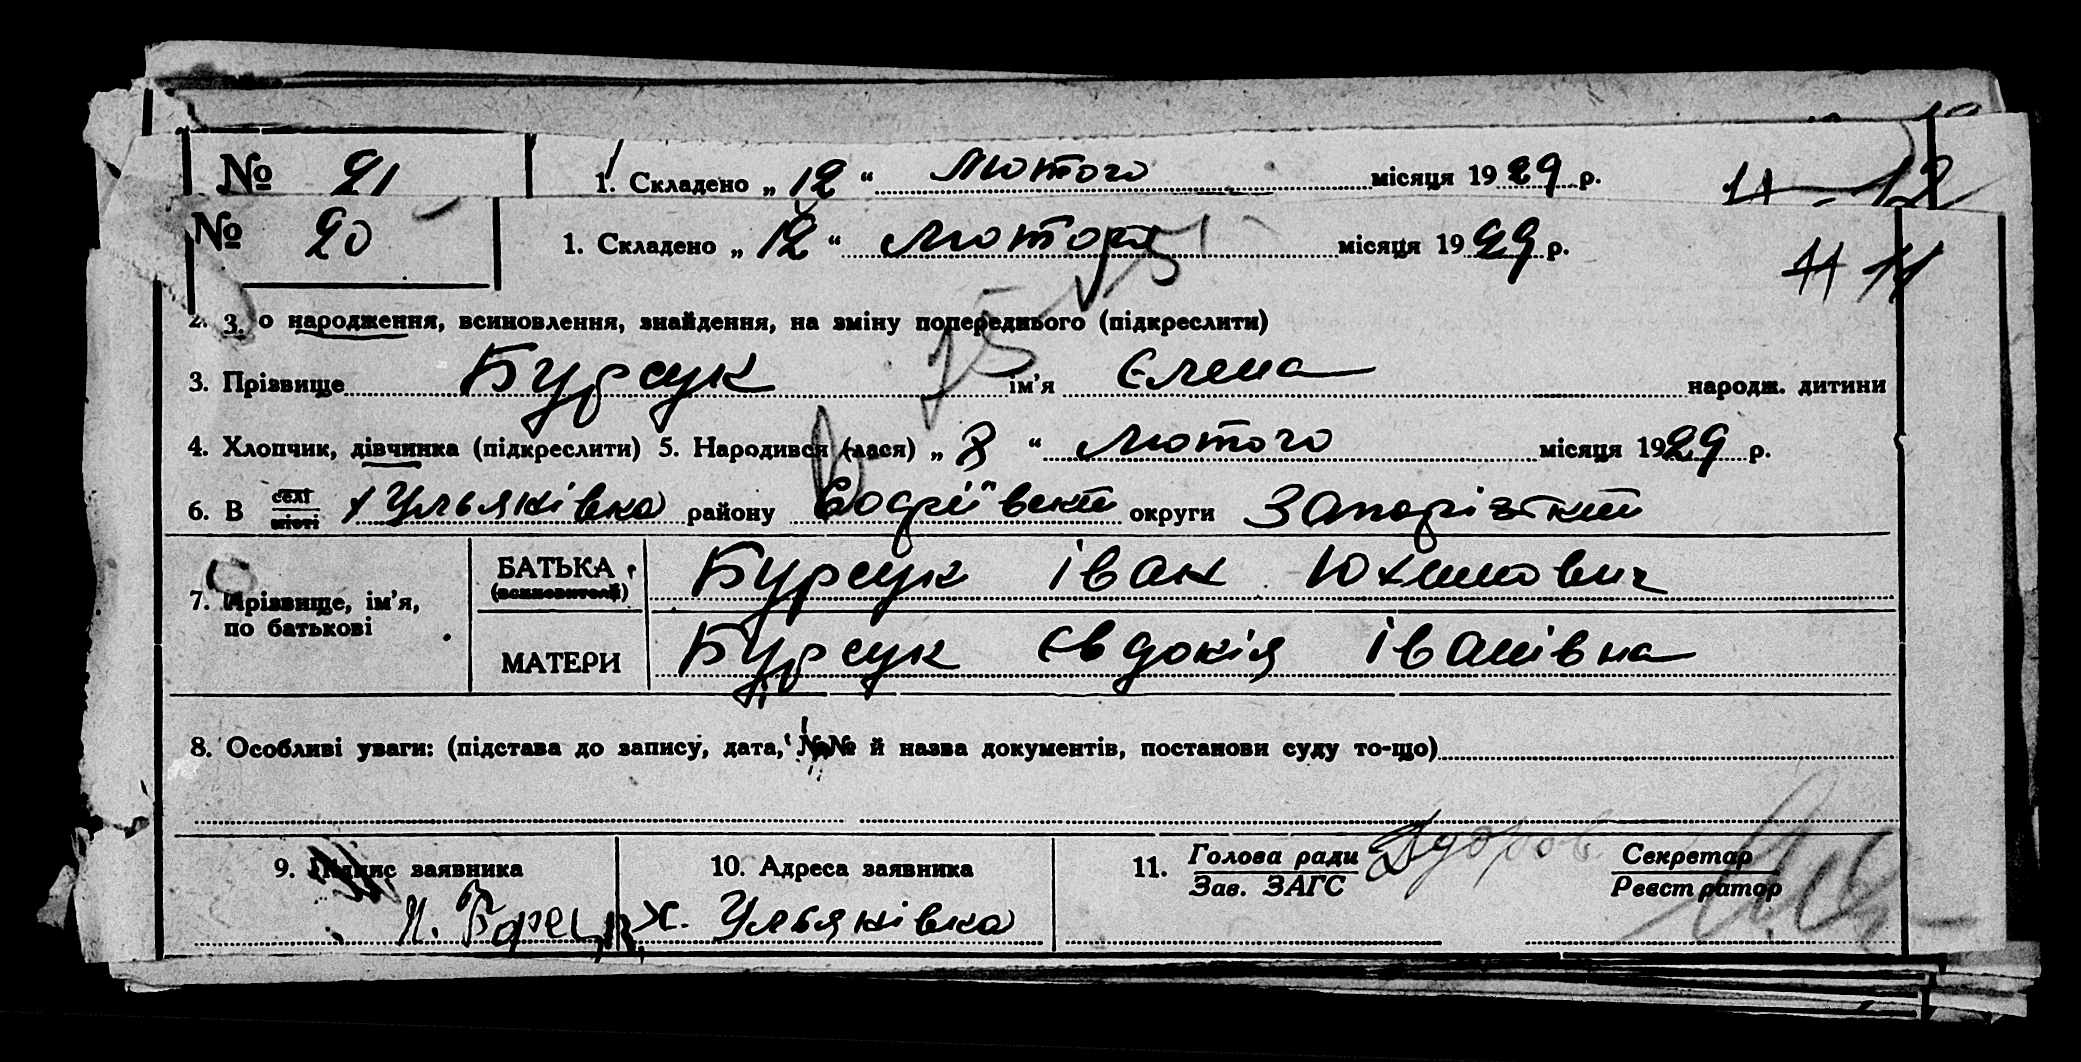 № 21 1. Складено „ 12 “ Лютого місяця 1929 р. 11 - 12
№ 20 1. Складено „ 12 “ Лютого місяця 1929 р. 11 11
15
2. 3. о народження, всиновлення, знайдення, на зміну попереднього (підкреслити)
15
3. Прізвище Бурсук ім’я Єлена народж. дитини
4. Хлопчик, дівчинка (підкреслити) 5. Народився (лася) „ 8 “ Лютого місяця 1929 р.
6. В селі місті х Ульяківка району Софіївськ округи Запорізткий
7. Прізвище, ім’я, по батькові
БАТЬКА (всиновителя) Бурсук Іван Юхимович
МАТЕРИ Бурсук Євдокія Іванівна
8. Особливі уваги: (підстава до запису, дата, №№ й назва документів, постанови суду то-що)
9. Підпис заявника 10. Адреса заявника 11. Голова ради Зав. ЗАГС Секретар Реєстратор
х. Ульяківка